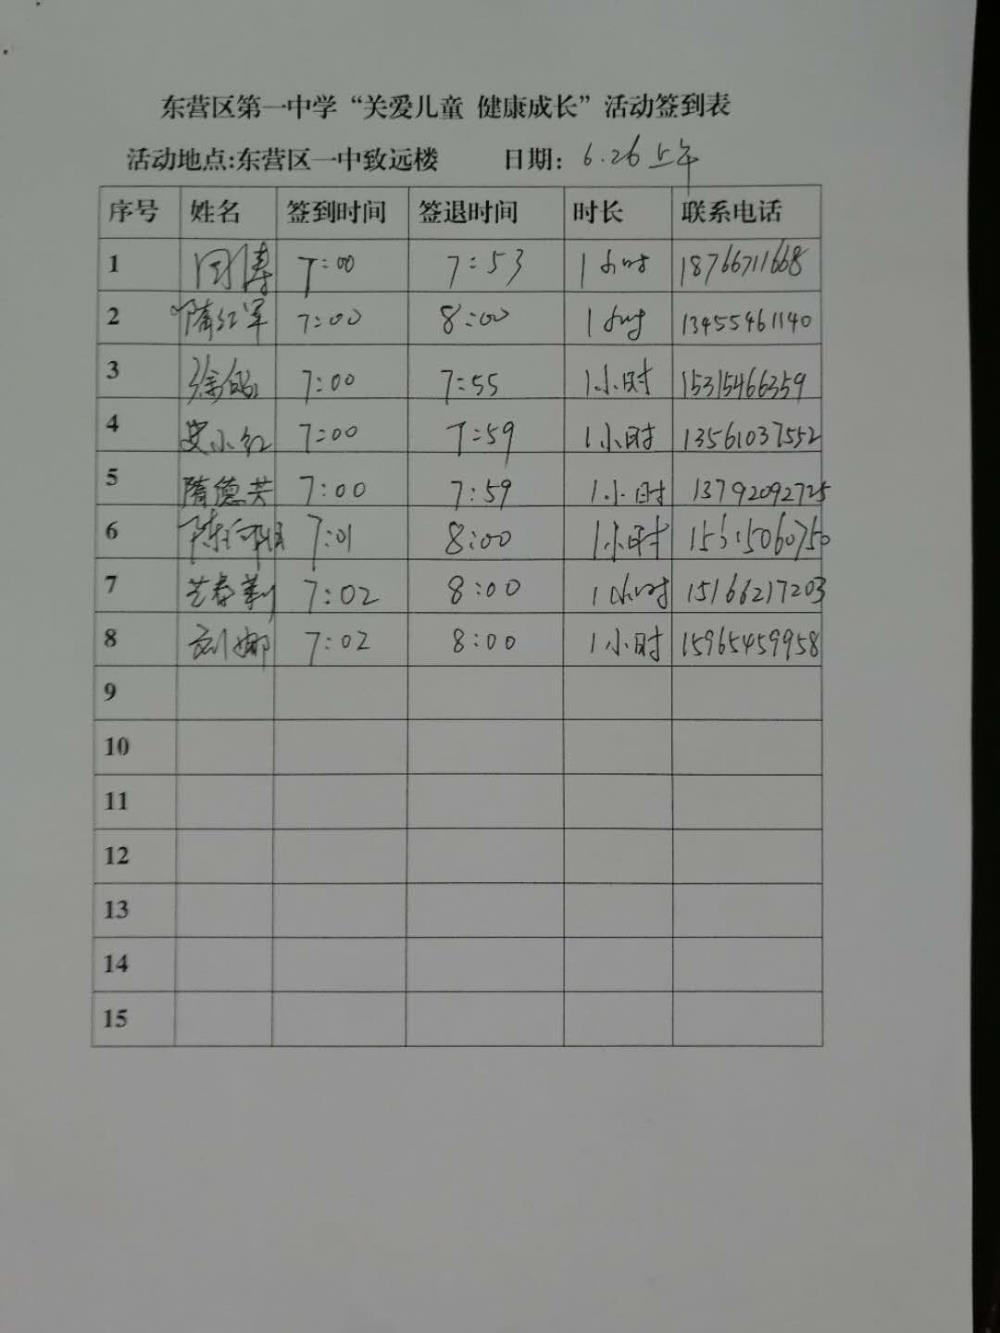 东营区第一中学“关爱儿童 健康成长”活动签到表
活动地点:东营区一中致远楼 日期: 6.26上午
序号 姓名 签到时间 签退时间 时长 联系电话
1 7:00 7:53 1小时 18766711668
2 隋红军 7:00 8:00 1小时 13455461140
3 7:00 7:55 1小时 15315466359
4 安小红 7:00 7:59 1小时 13561037552
5 隋德芳 7:00 7:59 1小时 13792092725
6 7:01 8:00 1小时 15315060750
7 7:02 8:00 1小时 15166217203
8 刘娜 7:02 8:00 1小时 15965459958
9
10
11
12
13
14
15